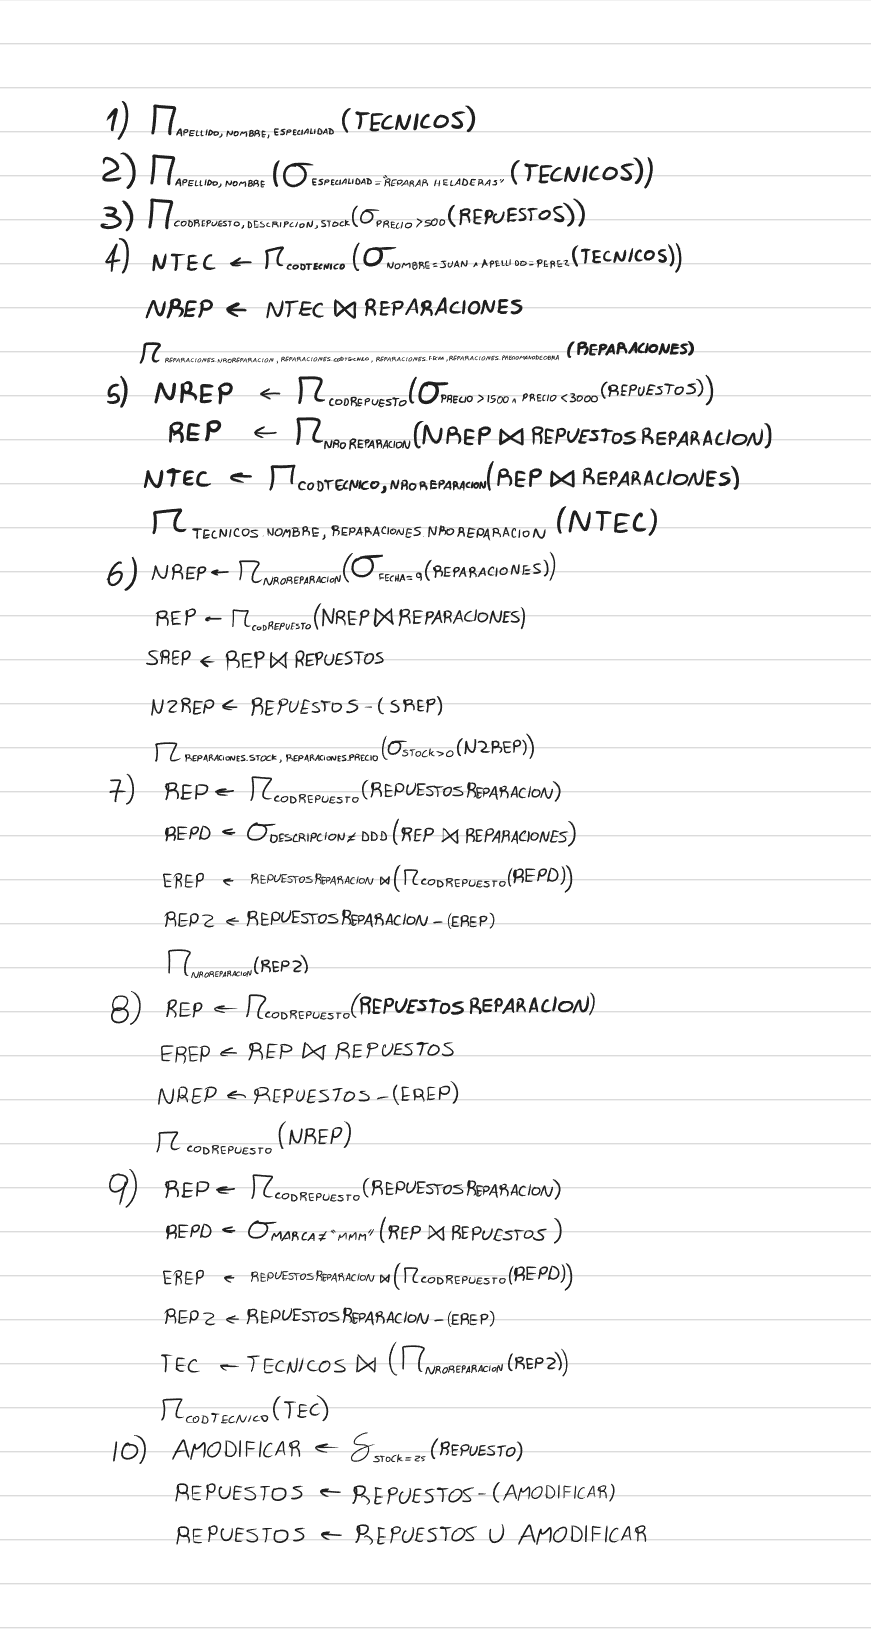 1) Π APELLIDO, NOMBRE, ESPECIALIDAD (TECNICOS)
2) Π APELLIDO, NOMBRE (σ ESPECIALIDAD = "REPARAR HELADERAS" (TECNICOS))
3) Π CODREPUESTO, DESCRIPCION, STOCK (σ PRECIO > 500 (REPUESTOS))
4) NTEC ← Π CODTECNICO (σ NOMBRE = JUAN ∧ APELLIDO = PEREZ (TECNICOS))
NREP ← NTEC ⋈ REPARACIONES
Π REPARACIONES.NROREPARACION, REPARACIONES.CODTECNICO, REPARACIONES.FECHA, REPARACIONES.PRECIOMANODEOBRA (REPARACIONES)
5) NREP ← Π CODREPUESTO (σ PRECIO > 1500 ∧ PRECIO < 3000 (REPUESTOS))
REP ← Π NROREPARACION (NREP ⋈ REPUESTOSREPARACION)
NTEC ← Π CODTECNICO, NROREPARACION (REP ⋈ REPARACIONES)
Π TECNICOS.NOMBRE, REPARACIONES.NROREPARACION (NTEC)
6) NREP ← Π NROREPARACION (σ FECHA = 9 (REPARACIONES))
REP ← Π CODREPUESTO (NREP ⋈ REPARACIONES)
SREP ← REP ⋈ REPUESTOS
N2REP ← REPUESTOS - (SREP)
Π REPARACIONES.STOCK, REPARACIONES.PRECIO (σ STOCK > 0 (N2REP))
7) REP ← Π CODREPUESTO (REPUESTOSREPARACION)
REPD ← σ DESCRIPCION ≠ DDD (REP ⋈ REPARACIONES)
EREP ← REPUESTOSREPARACION ⋈ (Π CODREPUESTO (REPD))
REP2 ← REPUESTOSREPARACION - (EREP)
Π NROREPARACION (REP2)
8) REP ← Π CODREPUESTO (REPUESTOSREPARACION)
EREP ← REP ⋈ REPUESTOS
NREP ← REPUESTOS - (EREP)
Π CODREPUESTO (NREP)
9) REP ← Π CODREPUESTO (REPUESTOSREPARACION)
REPD ← σ MARCA ≠ "MMM" (REP ⋈ REPUESTOS)
EREP ← REPUESTOSREPARACION ⋈ (Π CODREPUESTO (REPD))
REP2 ← REPUESTOSREPARACION - (EREP)
TEC ← TECNICOS ⋈ (Π NROREPARACION (REP2))
Π CODTECNICO (TEC)
10) AMODIFICAR ← δ STOCK = 25 (REPUESTO)
REPUESTOS ← REPUESTOS - (AMODIFICAR)
REPUESTOS ← REPUESTOS U AMODIFICAR